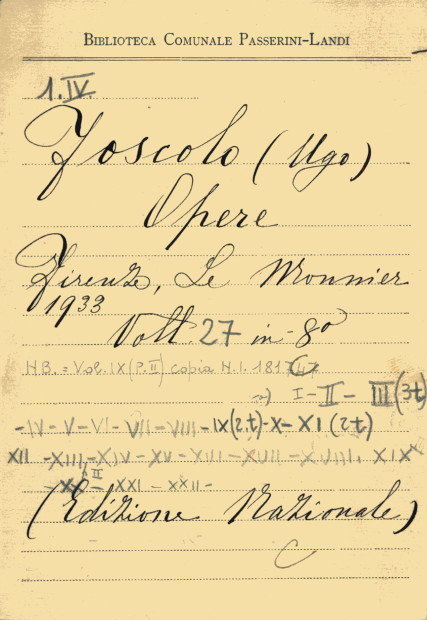 BIBLIOTECA COMUNALE PASSERINI-LANDI
1.IV.
Foscolo (Ugo)
Opere
Firenze, Le Monnier
1933
Voll. 27 in-8°
NB. = Vol. IX (P. II) copia N.I. 181747
I - II - III (3t)
- IV - V - VI - VII - VIII - IX (2.t) - X - XI (2t)
XII - XIII - XIV - XV - XVI - XVII - XVIII, XIX
- XX - XXI - XXII -
(Edizione Nazionale)